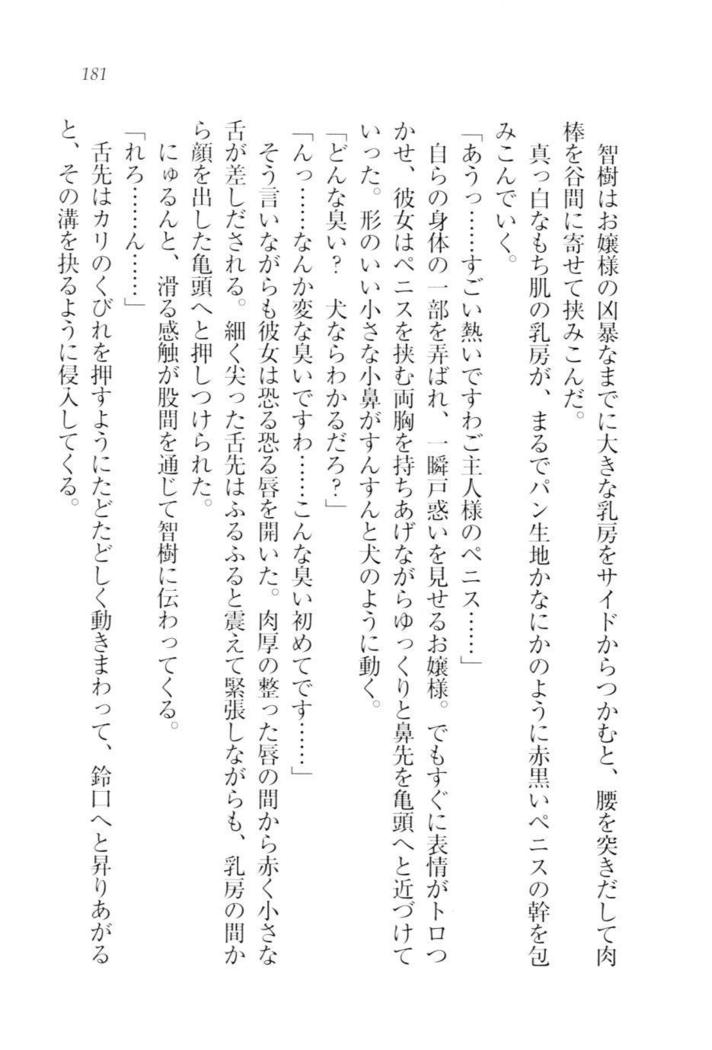 181
智樹はお嬢様の凶暴なまでに大きな乳房をサイドからつかむと、腰を突きだして肉
棒を谷間に寄せて挟みこんだ。
真っ白なもち肌の乳房が、まるでパン生地かなにかのように赤黒いペニスの幹を包
みこんでいく。
「あうっ……すごい熱いですわご主人様のペニス……」
自らの身体の一部を弄ばれ、一瞬戸惑いを見せるお嬢様。でもすぐに表情がトロつ
かせ、彼女はペニスを挟む両胸を持ちあげながらゆっくりと鼻先を亀頭へと近づけて
いった。形のいい小さな小鼻がすんすんと犬のように動く。
「どんな臭い？　犬ならわかるだろ？」
「んっ……なんか変な臭いですわ……こんな臭い初めてです……」
そう言いながらも彼女は恐る恐る唇を開いた。肉厚の整った唇の間から赤く小さな
舌が差しだされる。細く尖った舌先はふるふると震えて緊張しながらも、乳房の間か
ら顔を出した亀頭へと押しつけられた。
にゅるんと、滑る感触が股間を通じて智樹に伝わってくる。
「れろ……ん……」
舌先はカリのくびれを押すようにたどたどしく動きまわって、鈴口へと昇りあがる
と、その溝を抉るように侵入してくる。